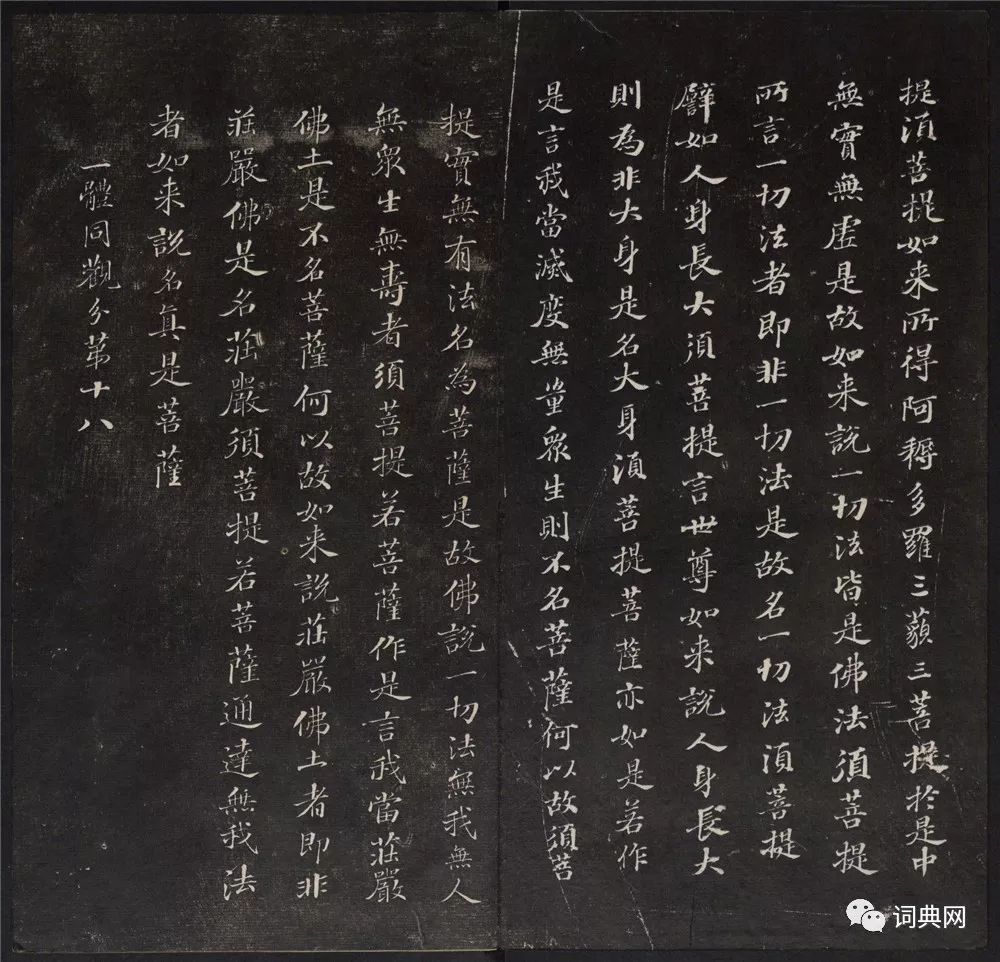 提湏菩提如来所得阿耨多羅三藐三菩提於是中
無實無虛是故如来說一切法皆是佛法須菩提
所言一切法者即非一切法是故名一切法湏菩提
譬如人身長大湏菩提言世尊如来說人身長大
則為非大身是名大身湏菩提菩薩亦如是若作
是言我當滅度無量衆生則不名菩薩何以故須菩
提實無有法名為菩薩是故佛說一切法無我無人
無衆生無壽者須菩提若菩薩作是言我當莊嚴
佛土是不名菩薩何以故如来說莊嚴佛土者即非
莊嚴佛是名莊嚴須菩提若菩薩通達無我法
者如来說名真是菩薩
一體同觀分第十八
词典网